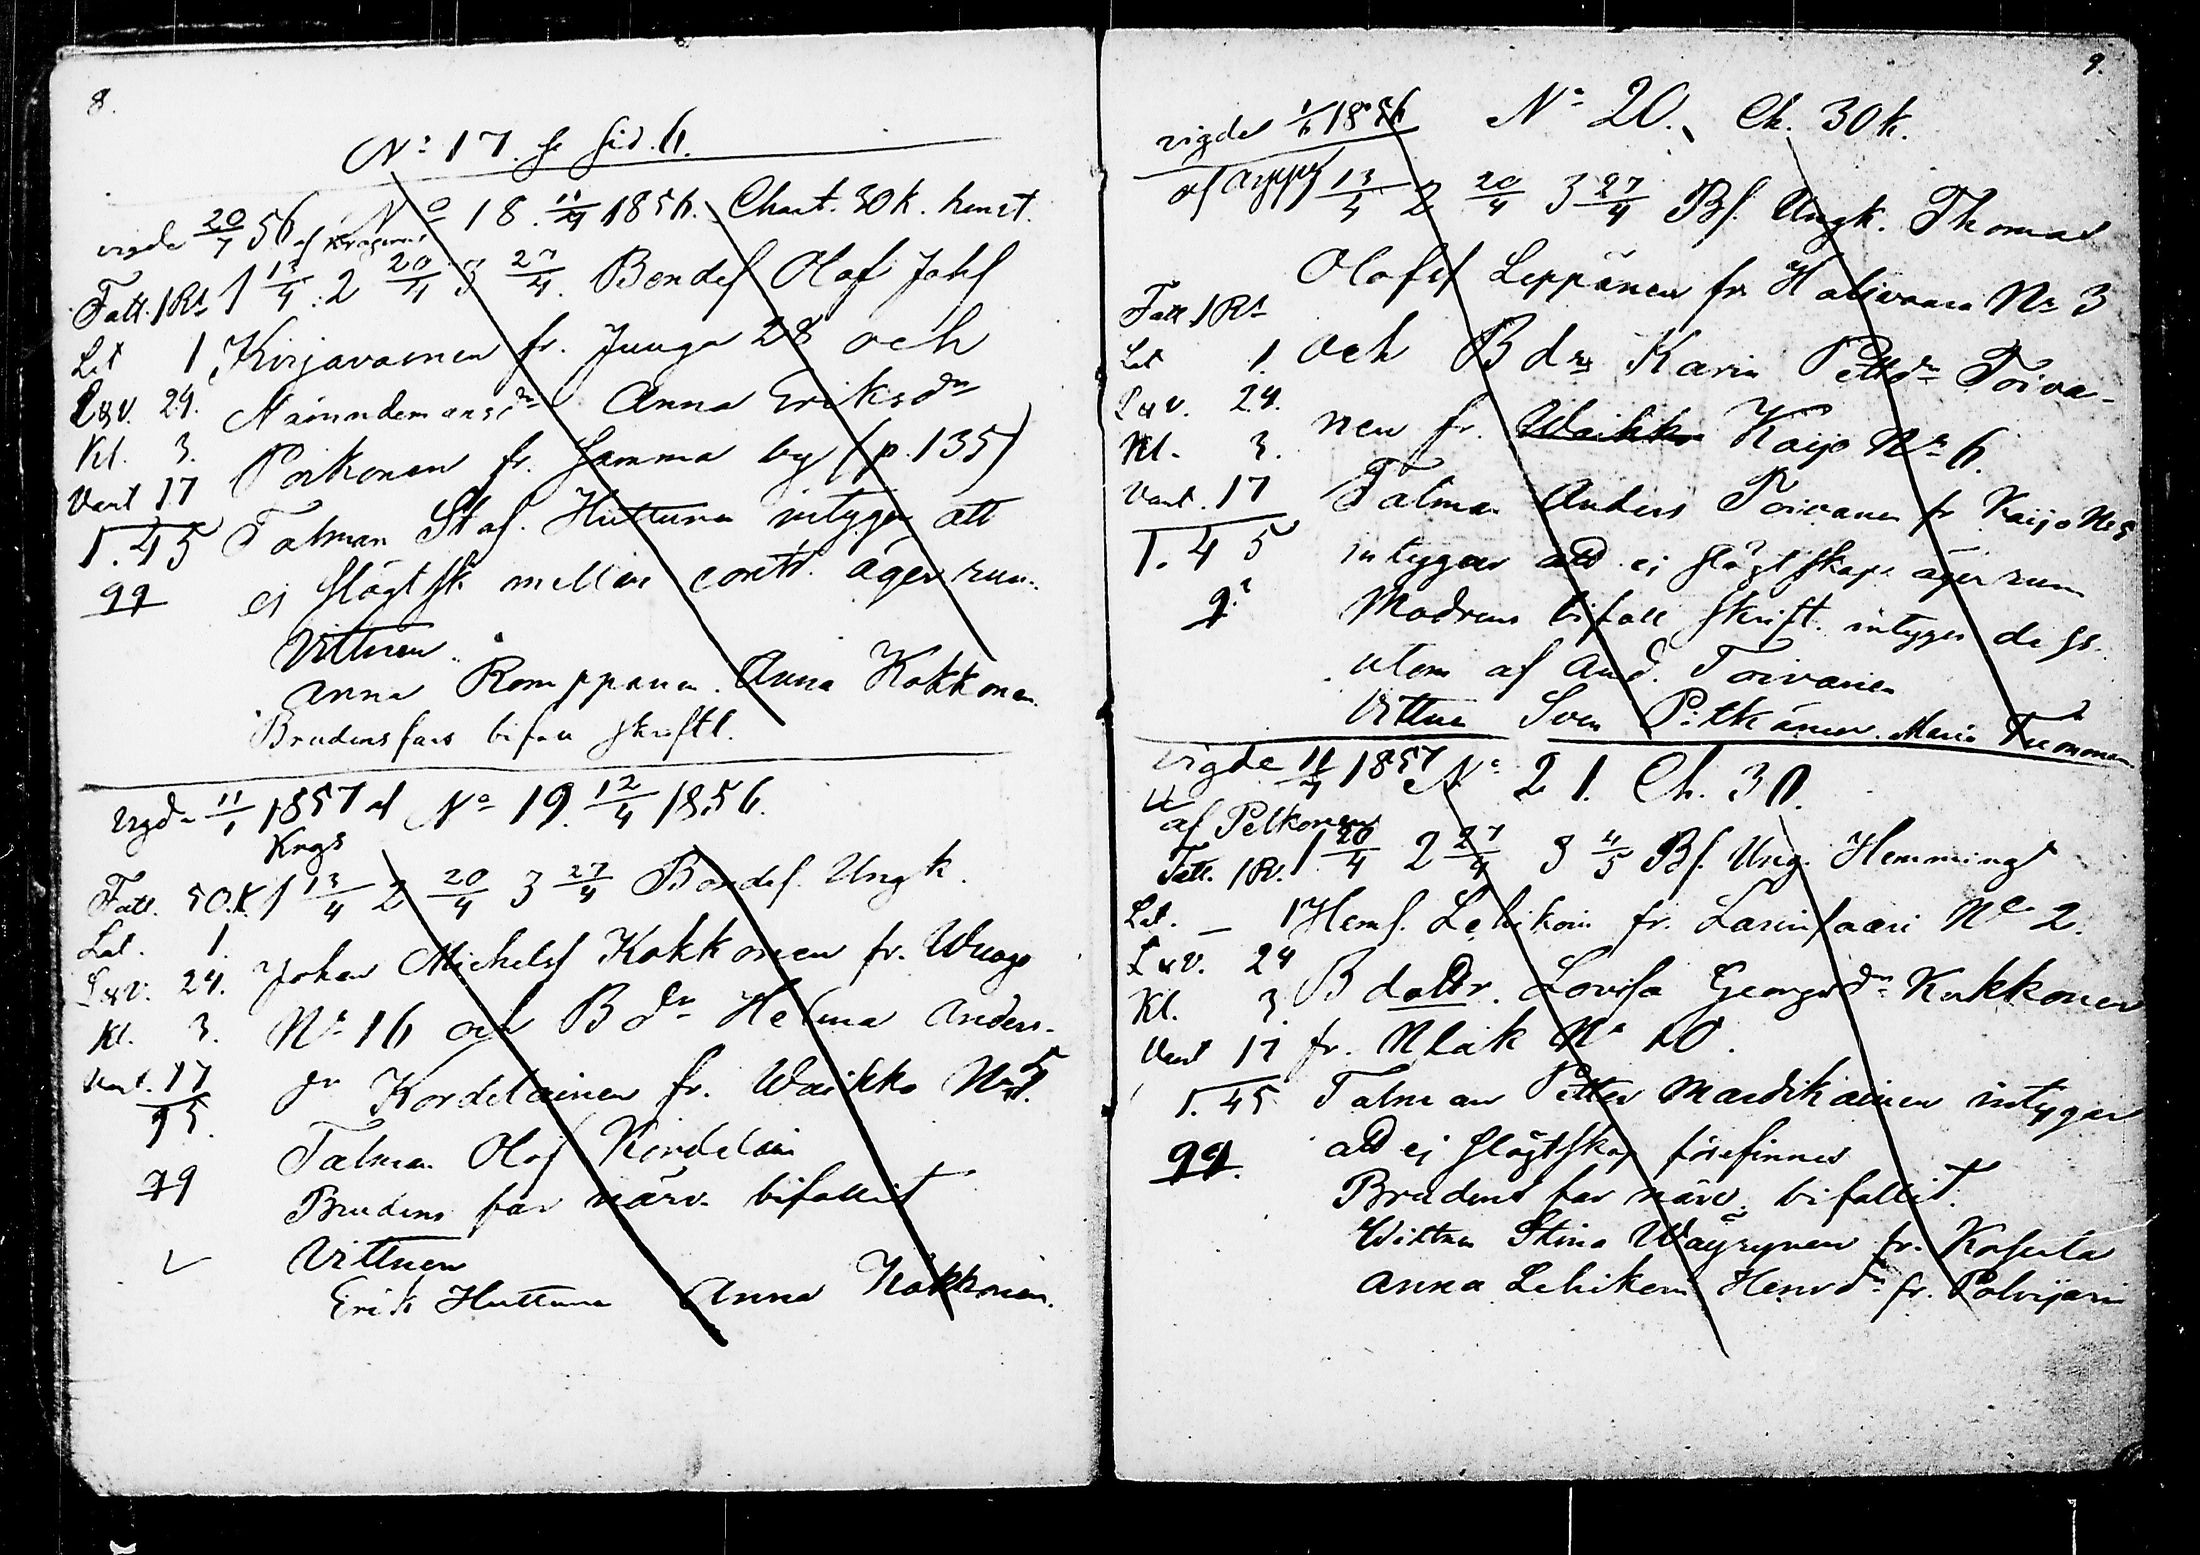 8.
No 17. se sid. 6.
vigde 20/7 56 af
No 18. 11/4 1856. Chart. 30 k. hemst.
Fatt. 1 Rl 1 13/4 2 20/4 3 27/4. Bondes Olof Johs
Let 1 Kirjavainen fr. Juuga 28 och
L&V. 24. Nämndemansdn Anna Eriksdn
Kl. 3. Poikonen fr. samma by (p. 135)
Vart 17 Talman Staf. Huttunen intygar att
1. 45 ej slägtsk mellan contr. äger rum.
99
Vittnen
Anna Romppanen. Anna Kokkonen.
Brudens fars bifall skriftl.
vigde 11/1 1857 af No 19. 12/4 1856.
Kngs
Fatt. 50 k. 1 13/4 2 20/4 3 27/4 Bondes. Ungk.
Let. 1. Johan Michelss Kokkonen fr. Wuogo
L&V. 24. No 16 och B dr Helena Anders-
Kl. 3. dr Kordelainen fr. Waikko No 5.
Vart. 17
95. Talman Olof Kordelain
99 Brudens far närv. bifallit
Vittnen
Erik Huttunen Anna Kokkonen.
9.
vigde 1/6 1856 No 20. Ch. 30 k.
af 13/4 2 20/4 3 27/4 Bs. Ungk. Thomas
Olofss Leppänen fr. Halivaara No 3
Fatt 1 Rl
Let 1. och B dr Karin Pettdr Toiva-
L&V. 24. nen fr. Waikko Kaijo No 6.
Kl. 3.
Vart. 17 Talman Anders Toivanen fr Kaijo No 5
1. 45 intygar att ej slägtskap äger rum
9. Modrens bifall skrift. intyges dess-
utom af And. Toivanen
Vittnen Sven Pitkänen. Maria
vigde 11/4 1857 No 21. Ch. 30.
af Pelkonen
Fatt. 1 R. 1 20/4 2 27/4 3 4/5 Bs. Ung. Hemming
Let. 1 Hems. Lehikoin fr. Larinsaari No 2.
L&V. 24 B dottr. Lovisa Georgsdr Kukkonen
Kl. 3.
Vart 17 fr. Nlak No 10.
1. 45 Talman Petter Mardikainen intygar
99. att ej slägtskap förefinnes
Brudens far närv. bifallit.
Wittnen Stina Wäyrynen fr. Koserla
Anna Lehikoin Henrdr fr. Polvijärvi